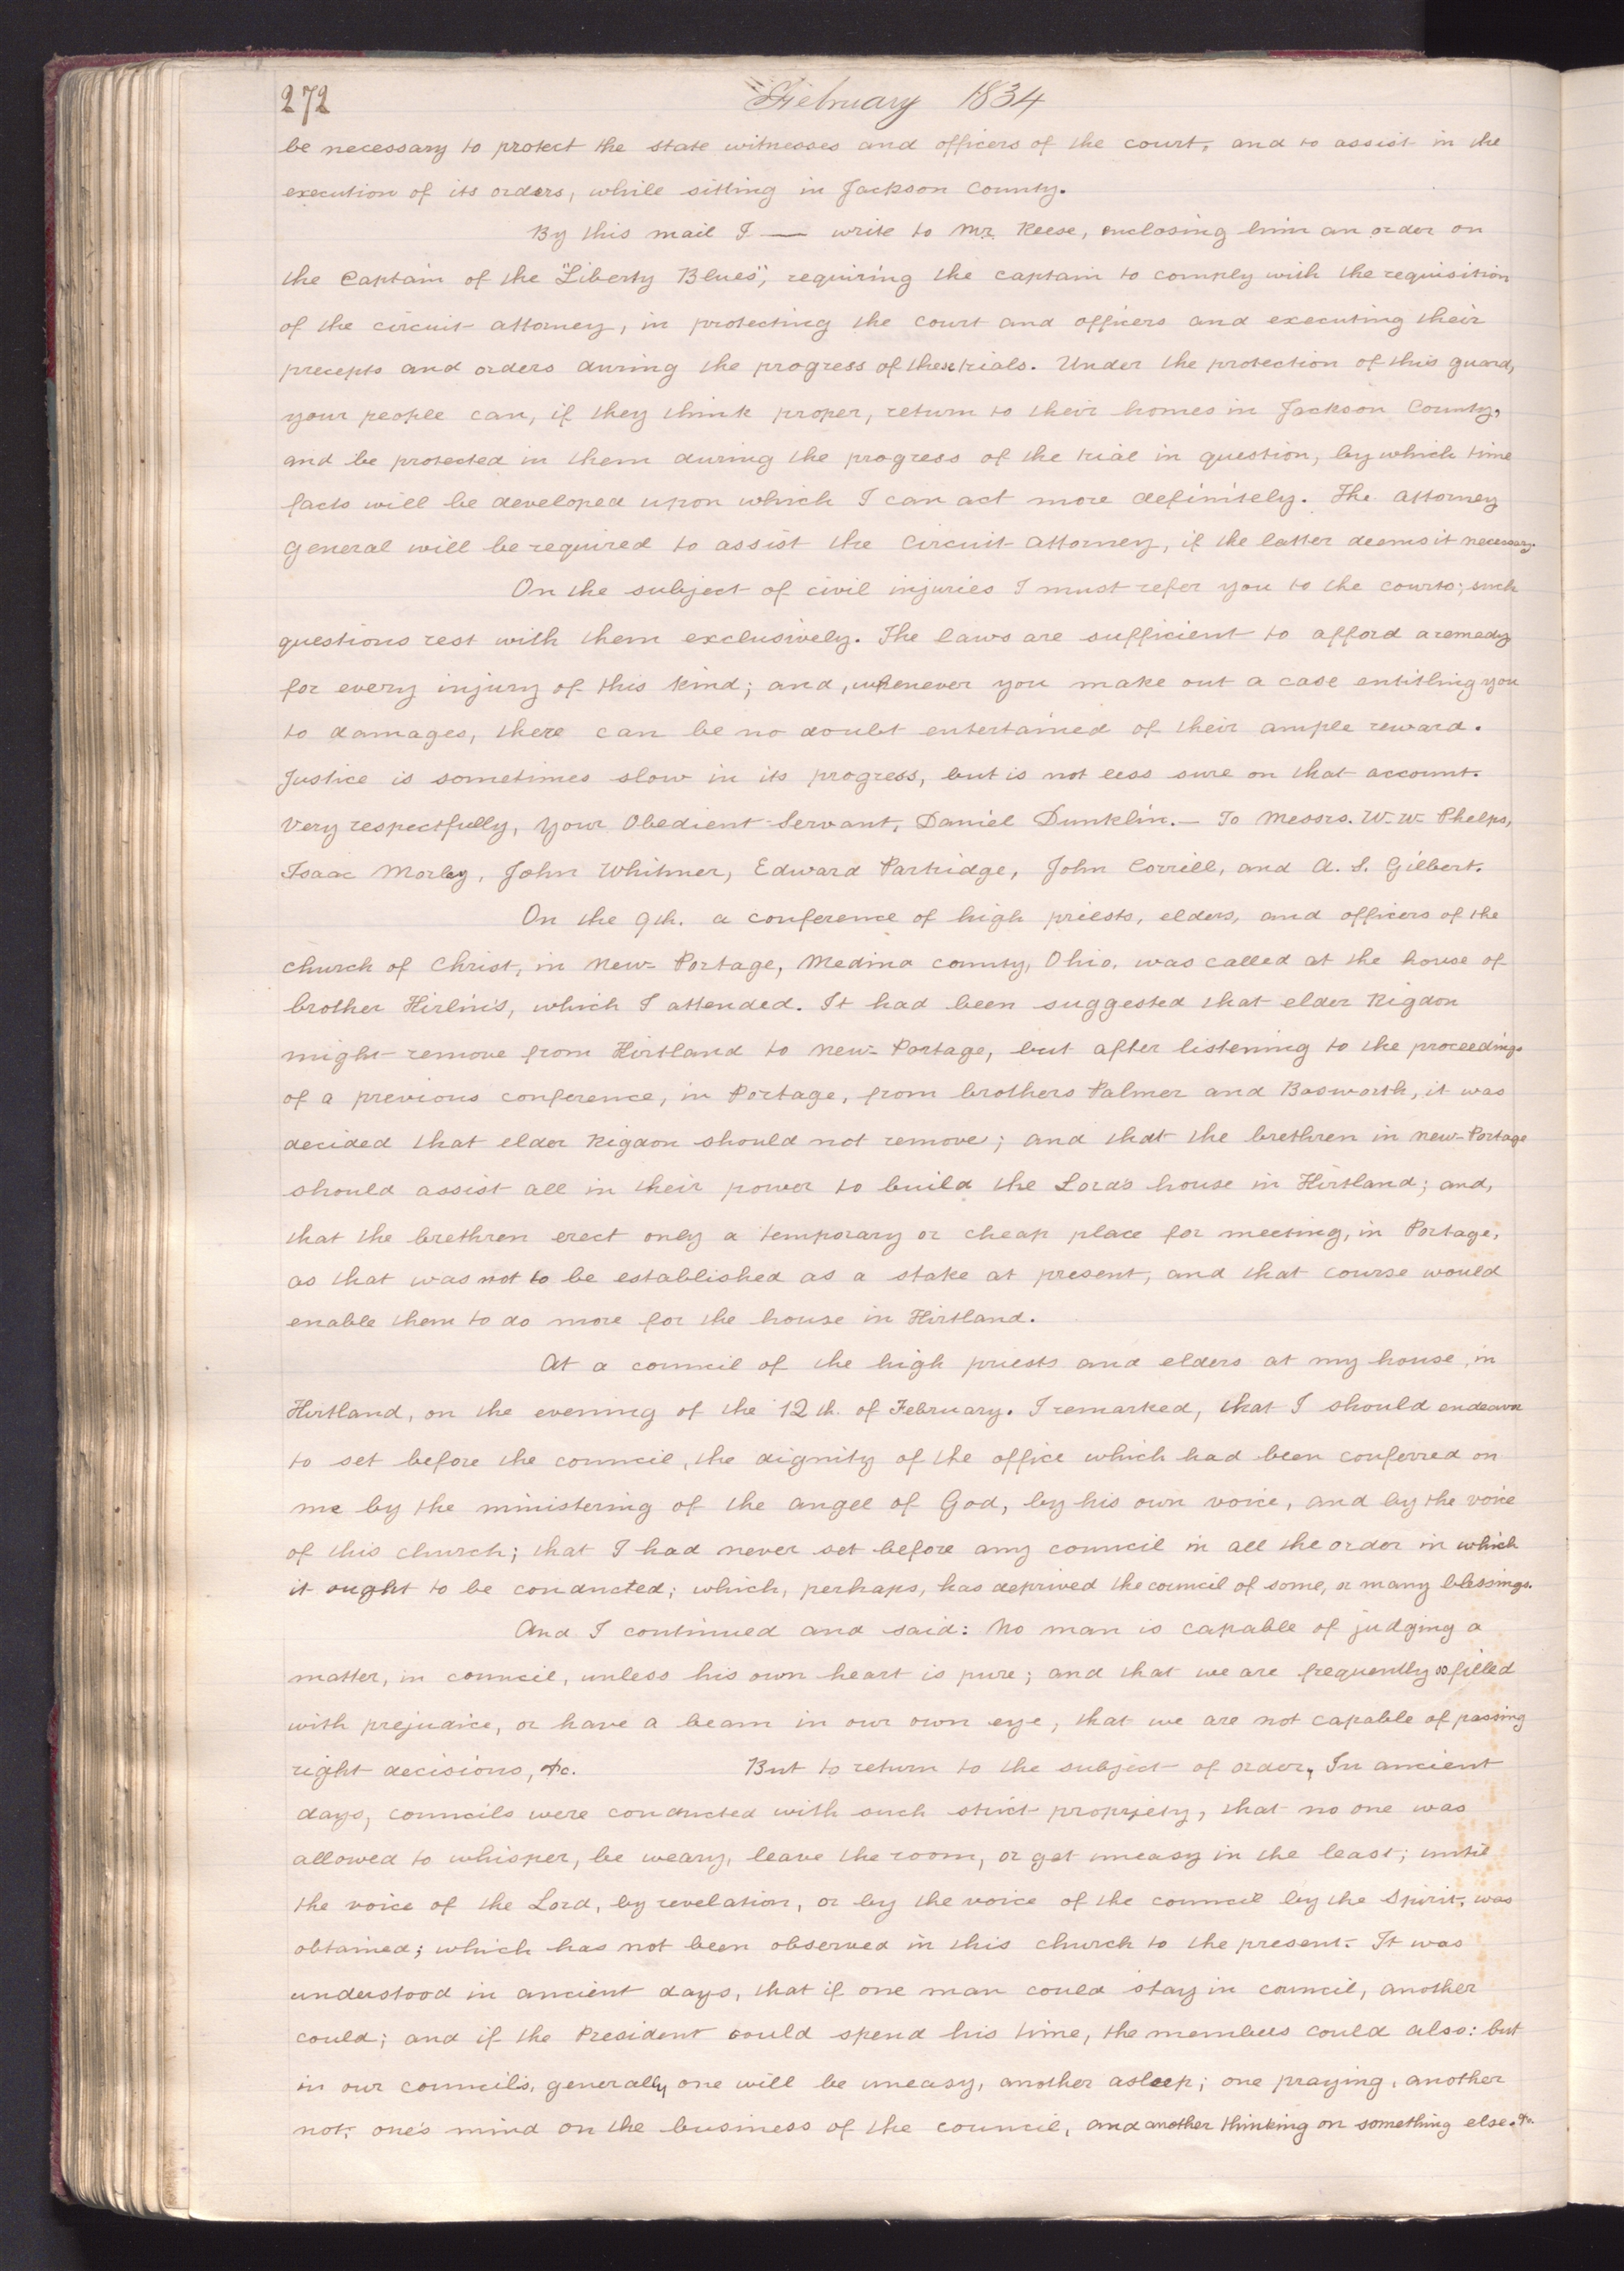 272
February 1834
be necessary to protect the state witnesses and officers of the court, and to assist in the
execution of its orders, while sitting in Jackson County.
By this mail I — write to Mr Reese, enclosing him an order on
the Captain of the "Liberty Blues", requiring the captain to comply with the requisition
of the circuit attorney, in protecting the court and officers and executing their
precepts and orders during the progress of these trials. Under the protection of this guard,
your people can, if they think proper, return to their homes in Jackson County,
and be protected in them during the progress of the trial in question, by which time
facts will be developed upon which I can act more definitely. The attorney
General will be required to assist the Circuit attorney, if the latter deems it necessary.
On the subject of civil injuries I must refer you to the courts; such
questions rest with them exclusively. The laws are sufficient to afford a remedy
for every injury of this kind; and, whenever you make out a case entitling you
to damages, there can be no doubt entertained of their ample reward.
Justice is sometimes slow in its progress, but is not less sure on that account.
Very respectfully, Your Obedient Servant, Daniel Dunklin.— To Messrs. W. W. Phelps,
Isaac Morley, John Whitmer, Edward Partridge, John Corrill, and A. S. Gilbert.
On the 9th. a conference of high priests, elders, and officers of the
church of Christ, in New-Portage, Medina county, Ohio, was called at the house of
brother Kirlin's, which I attended. It had been suggested that elder Rigdon
might remove from Kirtland to New-Portage, but after listening to the proceedings
of a previous conference, in Portage, from brothers Palmer and Bosworth, it was
decided that elder Rigdon should not remove; and that the brethren in New-Portage
should assist all in their power to build the Lord's house in Kirtland; and,
that the brethren erect only a temporary or cheap place for meeting, in Portage,
as that was not to be established as a stake at present, and that course would
enable them to do more for the house in Kirtland.
At a council of the high priests and elders at my house, in
Kirtland, on the evening of the 12th. of February. I remarked, that I should endeavor
to set before the council, the dignity of the office which had been conferred on
me by the ministering of the angel of God, by his own voice, and by the voice
of this church; that I had never set before any council in all the order in which
it ought to be conducted; which, perhaps, has deprived the council of some, or many blessings.
And I continued and said: No man is capable of judging a
matter, in council, unless his own heart is pure; and that we are frequently so filled
with prejudice, or have a beam in our own eye, that we are not capable of passing
right decisions, &c. But to return to the subject of order, In ancient
days, councils were conducted with such strict propriety, that no one was
allowed to whisper, be weary, leave the room, or get uneasy in the least; until
the voice of the Lord, by revelation, or by the voice of the council by the Spirit, was
obtained; which has not been observed in this church to the present. It was
understood in ancient days, that if one man could stay in council, another
could; and if the President could spend his time, the members could also: but
in our councils, generally one will be uneasy, another asleep; one praying, another
not; one's mind on the business of the council, and another thinking on something else. &c.